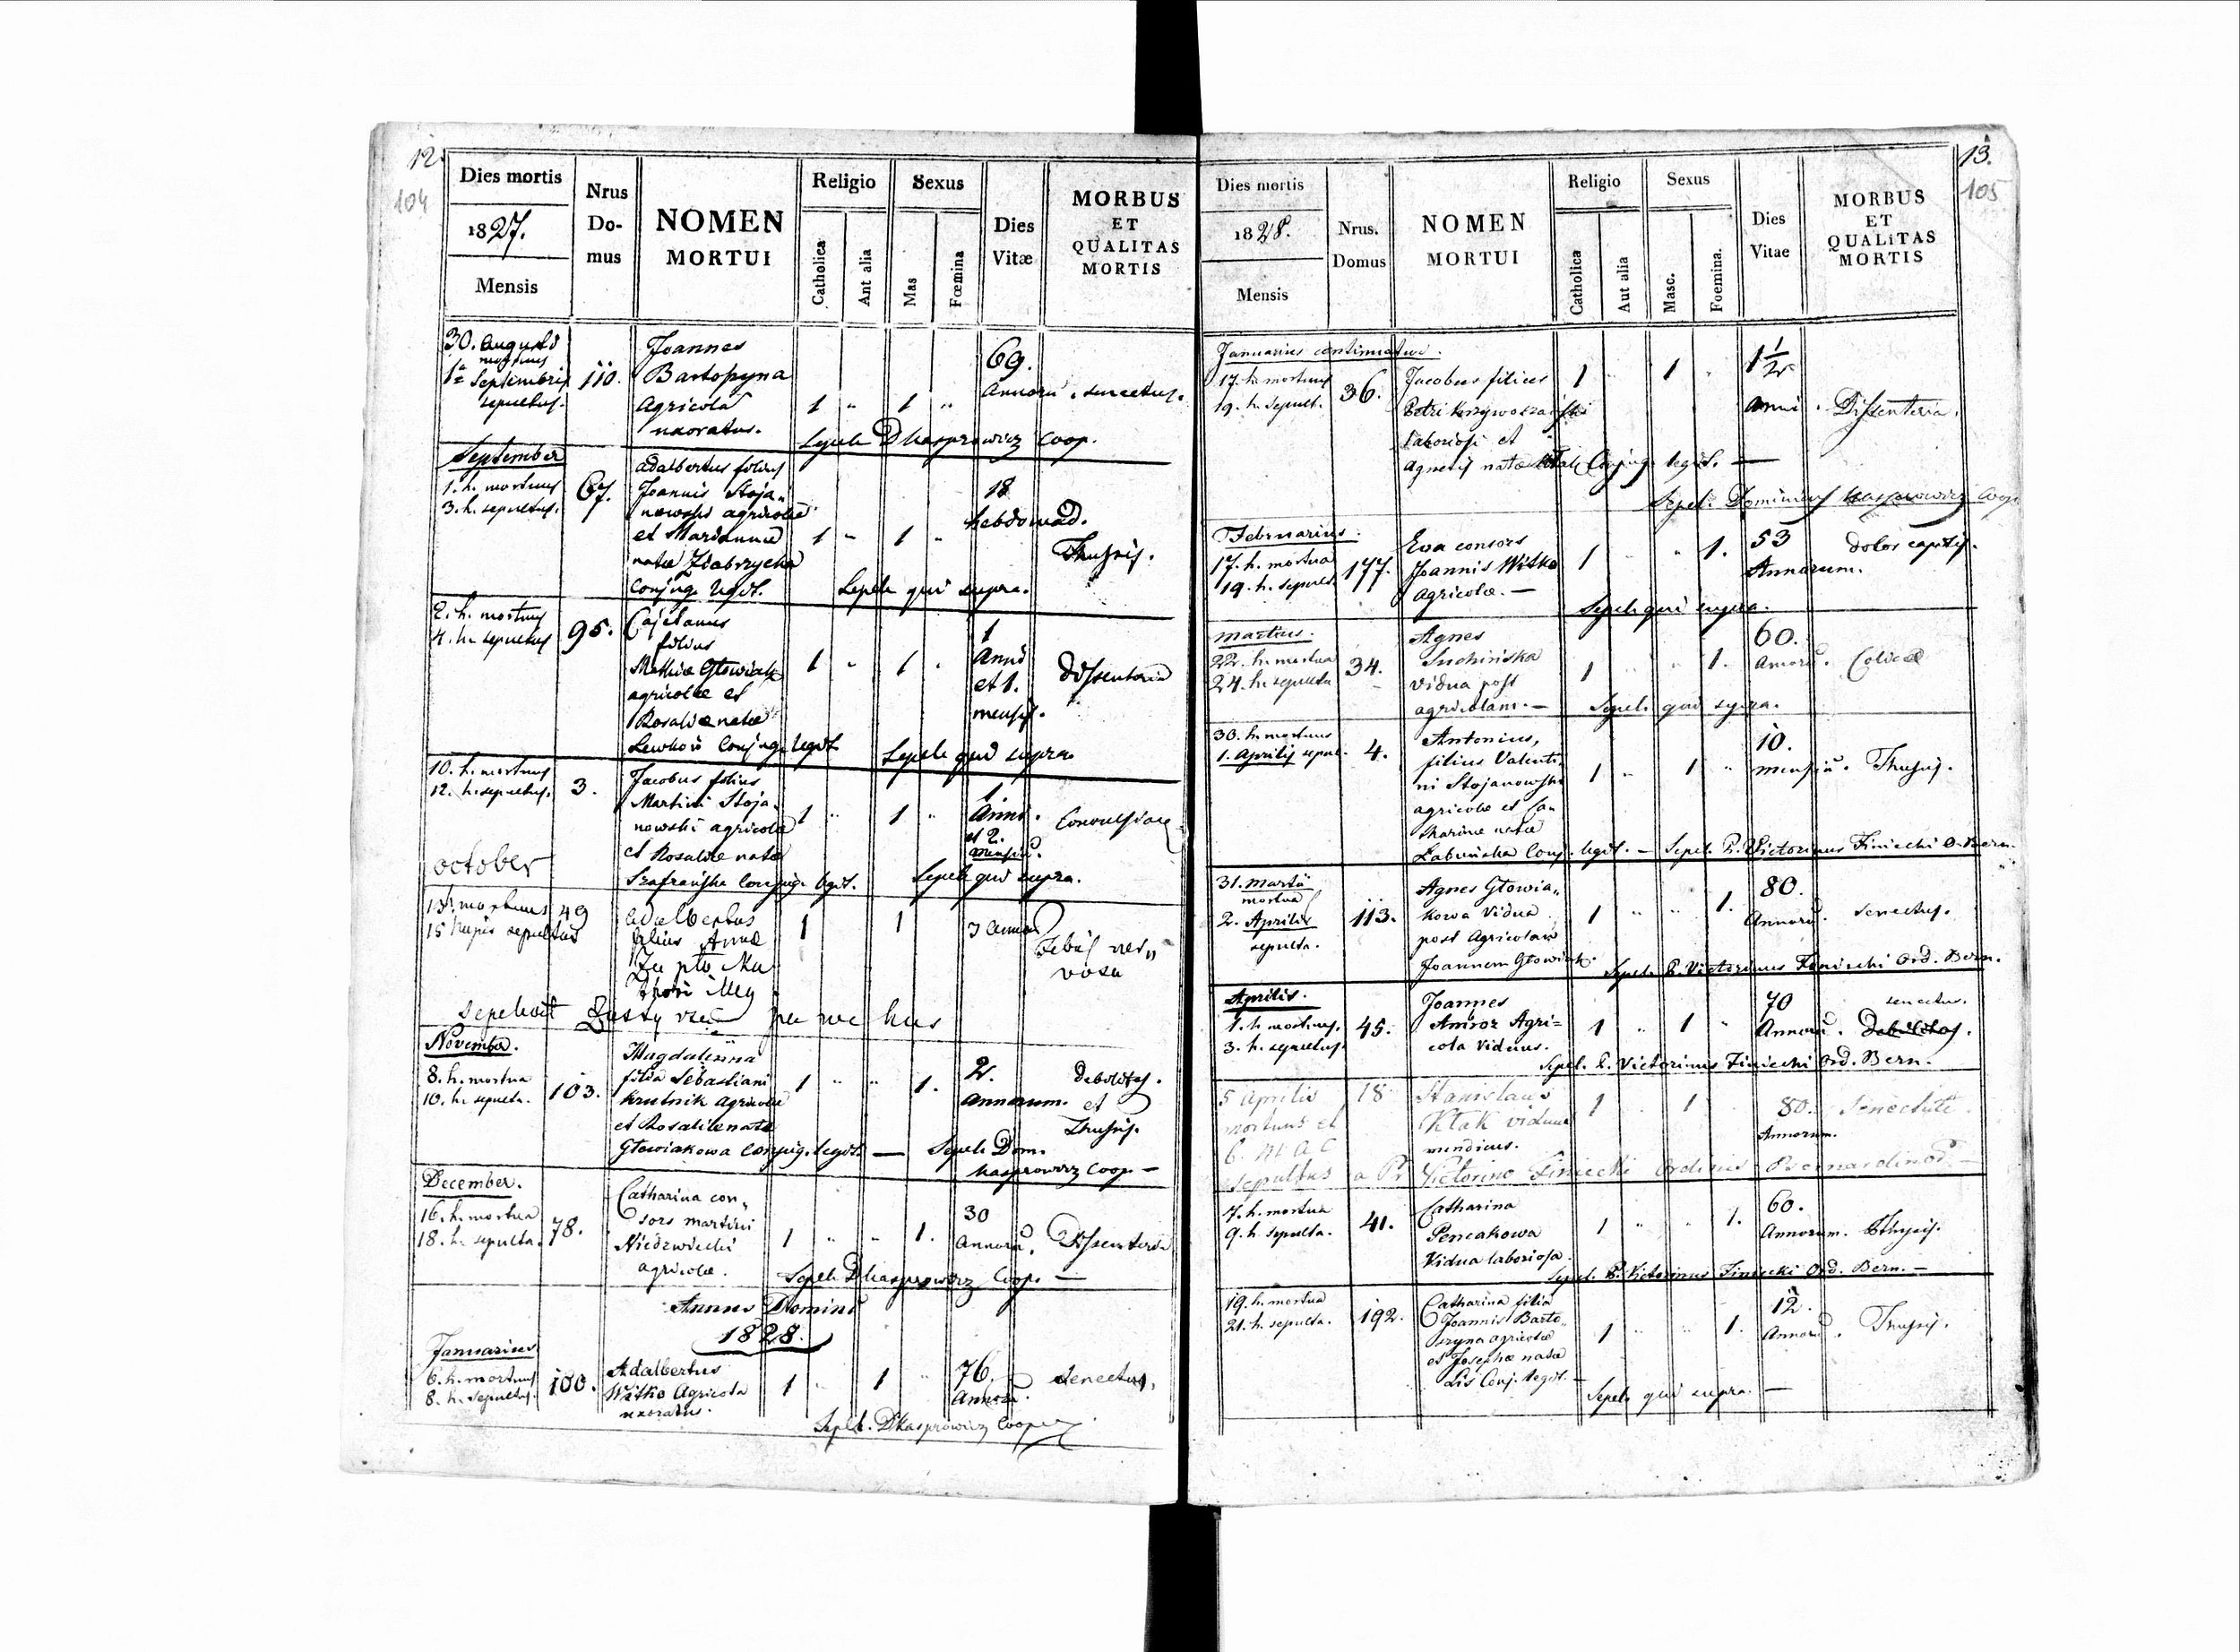 12.
104
Dies mortis
1827.
Mensis
Nrus
Do-
mus
NOMEN
MORTUI
Religio
Catholica
Aut alia
Sexus
Mas
Fœmina
Dies
Vitæ
MORBUS
ET
QUALITAS
MORTIS
30. Augusti
mortuus
1a Septembris
sepultus.
110.
Joannes
Bartoszyna
Agricola
uxoratus.
1 " 1 "
69.
Annorũ. senectus.
Sepel. D Kasprowicz Coop.
September
1. h. mortuus
3. h. sepultus.
67.
Adalbertus filius
Joannis Stoja„
nowski agricolæ
et Mariannæ
natæ Ziabrzycka
Conjug. legit.
1 " 1 "
18
hebdomad.
Thusis.
Sepel. qui supra.
2. h. mortuus
4. h. sepultus
95.
Cajetanus
filius
Mathiæ Głowiak
agricolæ et
Rosaliæ natæ
Lewkow Conjug. legit.
1 " 1 "
1
Anni
et 1.
mensis.
Dissenteria
Sepel. qui supra
10. h. mortuus
12. h. sepultus.
3.
Jacobus filius
Martini Stoja„
nowski agricolæ
et Rosaliæ natæ
Szafrańska Conjug. legit.
1 " 1 "
1
Anni.
et 2.
mensiũ.
Convulsiones
Sepel. qui supra.
October
13 h. mortuus
15 hujus sepultus
49
Adalbertus
filius Annæ
1 1
3 Annor
Febris ner„
vosa
Sepelivit
November.
8. h. mortua
10. h. sepulta.
103.
Magdalenna
filia Sebastiani
Krutnik Agricolæ
et Rosaliæ natæ
Głowiakowa Conjug. legit. —
1 " " 1.
2.
Annorum.
Debilitas.
et
Thusis.
Sepel. Dom.
Kasprowicz Coop. —
December.
16. h. mortua
18. h. sepulta.
78.
Catharina con„
sors Martini
Niedzwiecki
agricolæ.
1 " " 1.
30
Annorũ.
Dissenteria
Sepel. D Kasprowicz Coop. —
Annus Domini
1828.
Januarius
6. h. mortuus
8. h. sepultus.
100.
Adalbertus
Witko Agricola
uxoratus.
1 " 1 "
76.
Annorũ.
senectus.
Sepel. D Kasprowicz Coop
13.
105
Dies mortis
1828.
Mensis
Nrus.
Domus
NOMEN
MORTUI
Religio
Catholica
Aut alia
Sexus
Masc.
Foemina.
Dies
Vitae
MORBUS
ET
QUALITAS
MORTIS
Januarius continuatur.
17. h. mortuus
19. h. sepult.
36.
Jacobus filius
Petri
laboriosi et
Agnetis natæ Conjug. legit. —
1 " 1 "
1 1/2
Anni.
Dissenteria.
Sepel. Dominicus Kasprowicz Coop.
Februarius.
17. h. mortua
19. h. sepult.
177.
Eva consors
Joannis Witko
Agricolæ. —
1 " " 1.
53
Annorum.
dolor capitis.
Sepel. qui supra.
Martius.
22. h. mortua
24. h. sepulta
34.
Agnes
Suchińska
vidua post
agricolam. —
1 " " 1.
60.
Annorũ.
Colica
Sepel. qui supra.
30. h. mortuus
1. Aprilis sepul.
4.
Antonius,
filius Valenti„
ni Stojanowski
agricolæ et Ca„
tharinæ natæ
Łabuńska Conj. legit. —
1 " 1 "
10.
mensiũ.
Thusis.
Sepel. P. Victorinus Finiecki O. Bern.
31. Martii
mortua
2. Aprilis
sepulta.
113.
Agnes Głowia„
kowa Vidua
post Agricolam
Joannem Głowiak.
1 " " 1.
80.
Annorũ.
senectus.
Sepel. P. Victorinus Finiecki Ord. Bern.
Aprilis.
1. h. mortuus.
3. h. sepultus.
45.
Joannes
Amroz Agri=
cola Viduus.
1 " 1 "
70
Annorũ.
senectus.
Debilitas.
Sepel. P. Victorinus Finiecki Ord. Bern.
5 Aprilis
mortuus et
6. M A C
sepultus a Pr Victorino Finiecki Ordinis Bernardinorũ —
18
Stanislaus
Ktak viduus
mendicus.
1 1
80.
Annorum.
Senectute.
7. h. mortua
9. h. sepulta.
41.
Catharina
Pencakowa
Vidua laboriosa.
1 " " 1.
60.
Annorum.
Thysis.
Sepel. P. Victorinus Finiecki Ord. Bern. —
19. h. mortua
21. h. sepulta.
192.
Catharina filia
Joannis Barto„
szyna agricolæ
et Josephæ natæ
Lis Conj. legit. —
1 " " 1.
12.
Annorũ.
Thusis.
Sepel. qui supra. —